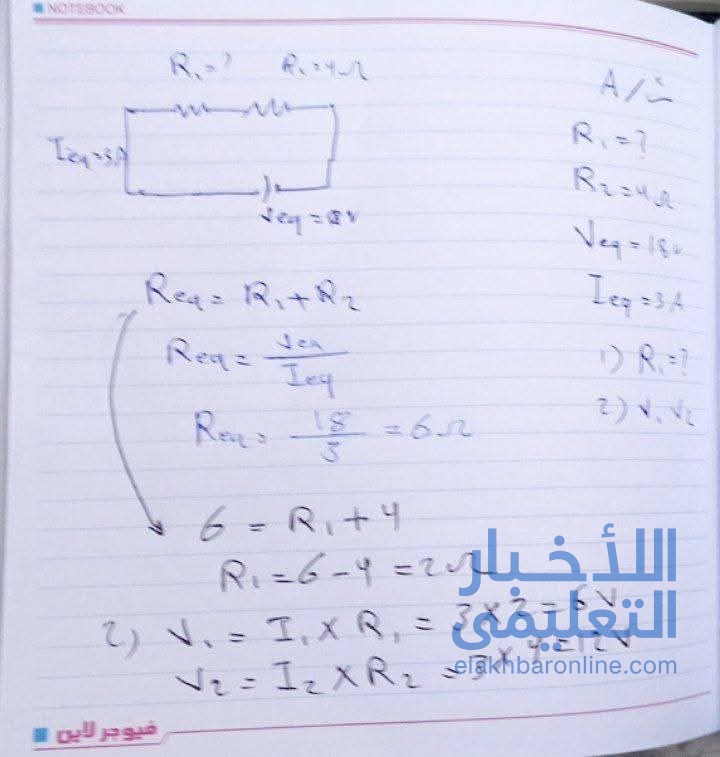 NOTEBOOK
R₁=? R₁=4Ω
Ieq=3A
Veq=18v
R₁=?
R₂=4Ω
Veq=18v
Ieq=3A
1) R₁=?
2) V₁ V₂
Req = R₁+R₂
Req = Veq/Ieq
Req = 18/3 = 6Ω
6 = R₁+4
R₁=6-4=2Ω
2) V₁ = I₁×R₁ = 3×2=6V
V₂=I₂×R₂=3×4=12V
اللأخبار
التعليمى
elakhbaronline.com
فيوجر لاين